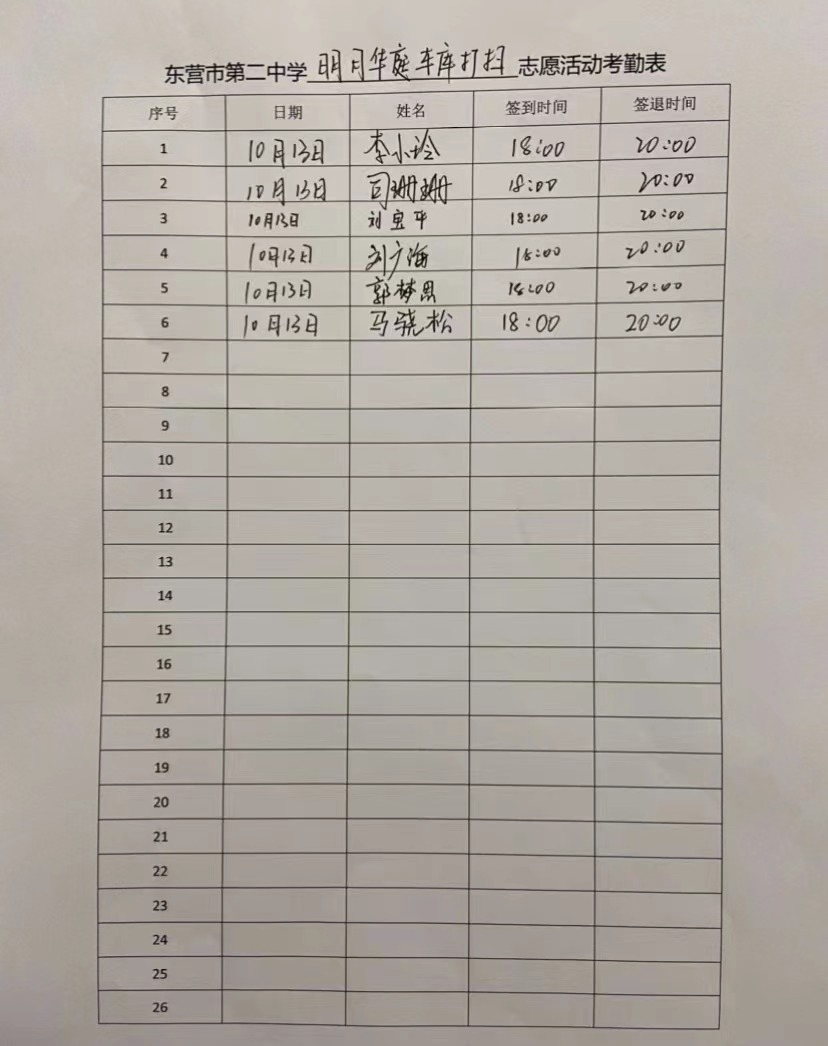 东营市第二中学 明月华庭车库打扫 志愿活动考勤表
序号 日期 姓名 签到时间 签退时间
1 10月13日 李小玲 18:00 20:00
2 10月13日 司珊珊 18:00 20:00
3 10月13日 刘宝平 18:00 20:00
4 10月13日 刘广海 18:00 20:00
5 10月13日 郭梦思 18:00 20:00
6 10月13日 马骁松 18:00 20:00
7
8
9
10
11
12
13
14
15
16
17
18
19
20
21
22
23
24
25
26